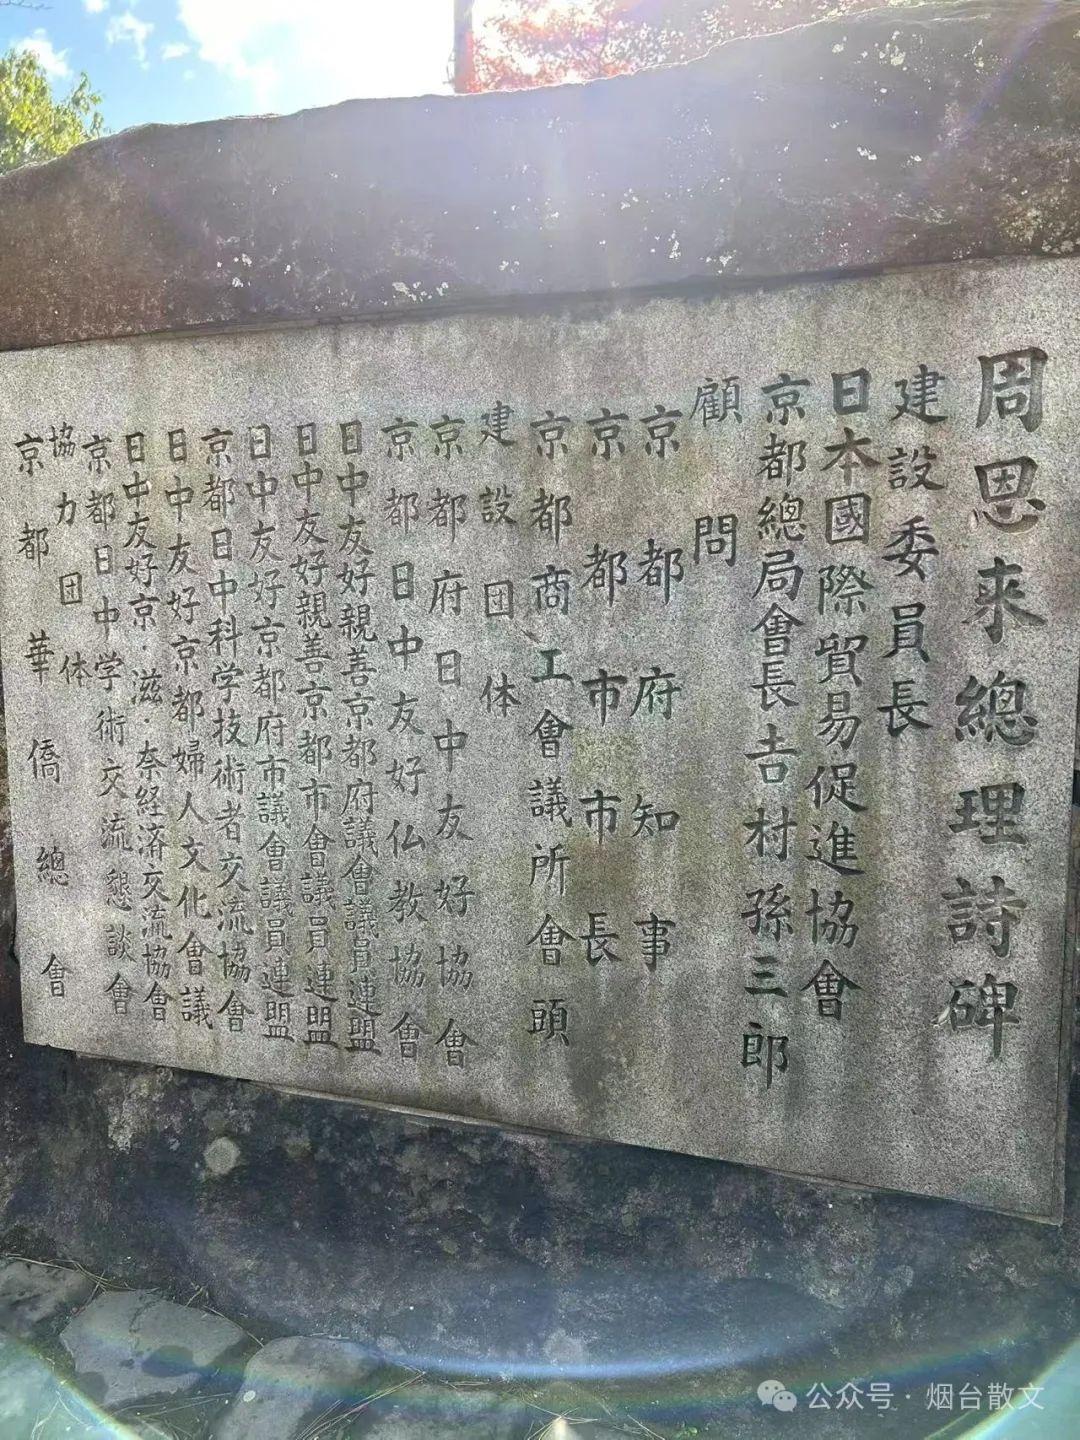 周恩来總理詩碑
建設委員長
日本國際貿易促進協會
京都總局會長吉村孫三郎
顧問
京都府知事
京都市市長
京都商工會議所會頭
建設団体
京都府日中友好協會
京都日中友好仏教協會
日中友好親善京都府議會議員連盟
日中友好親善京都市會議員連盟
日中友好京都府市議會議員連盟
京都日中科学技術者交流協會
日中友好京都婦人文化會議
日中友好京·滋·奈経済交流協會
京都日中学術交流懇談會
協力団体
京都華僑總會
公众号·烟台散文